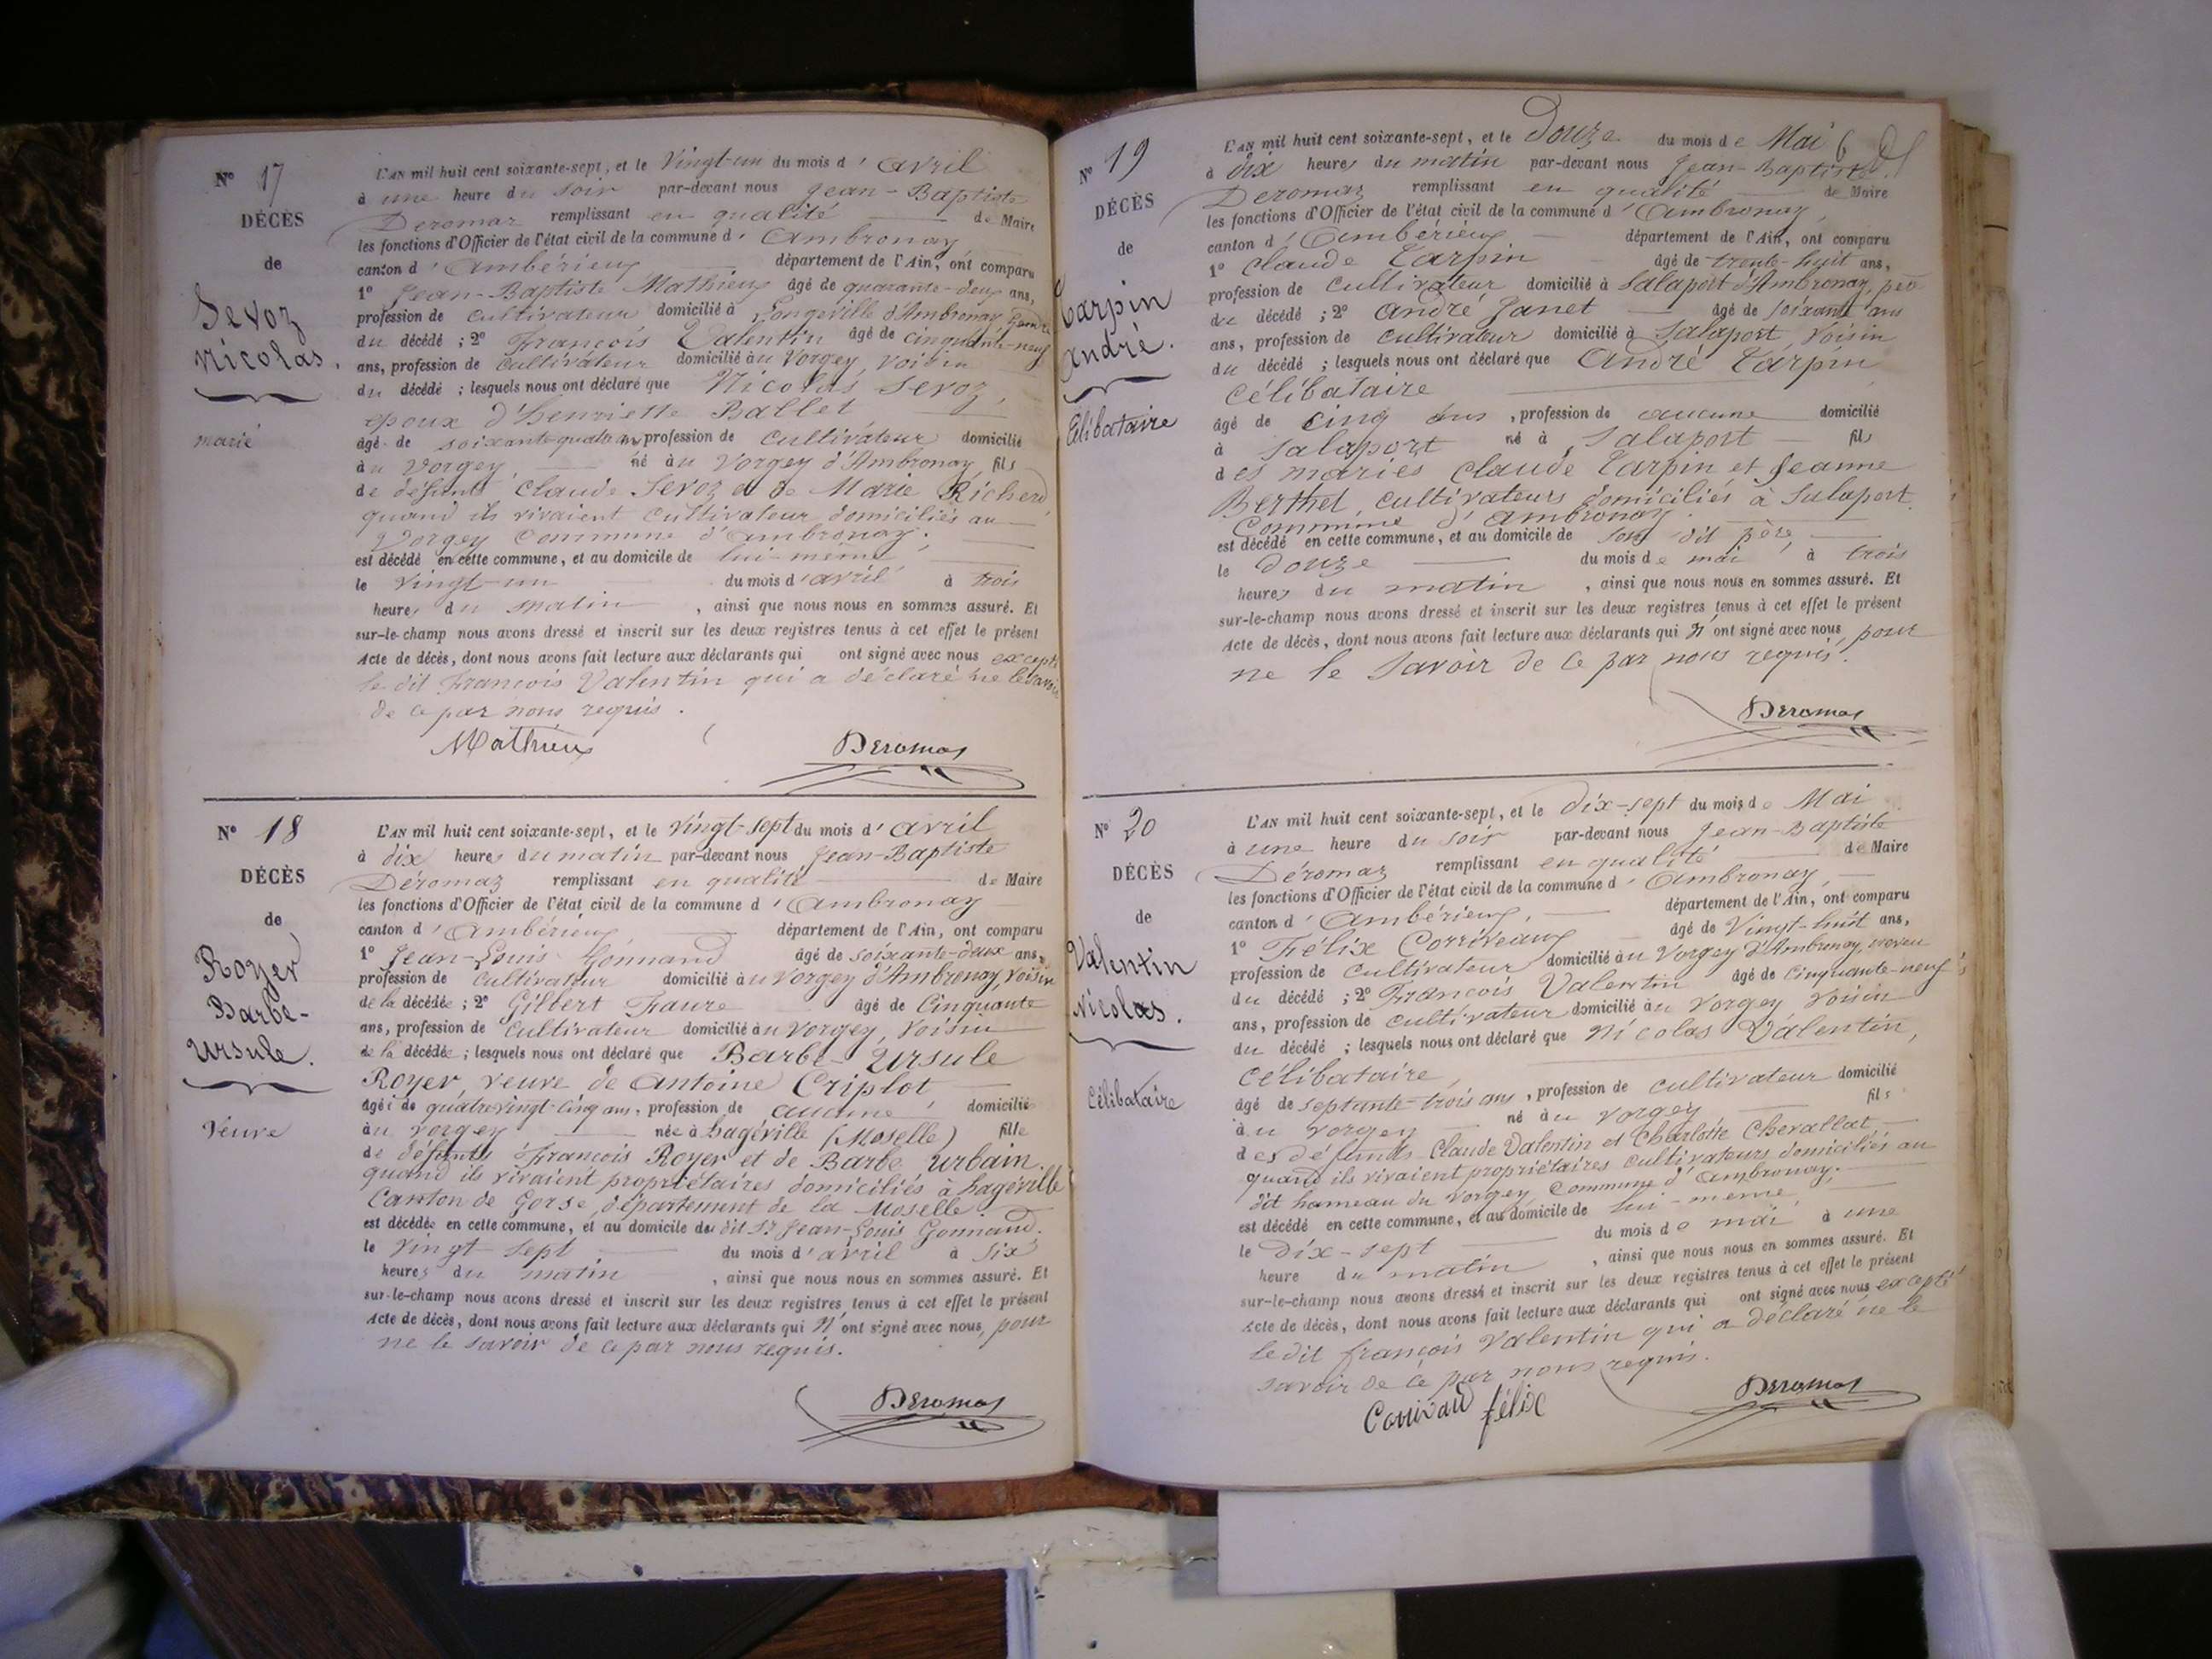 N° 17
DÉCÈS
de
Sevoz
Nicolas.
marié
L'AN mil huit cent soixante-sept, et le Vingt-un du mois d'avril
à une heure du soir par-devant nous Jean-Baptiste
Deromaz remplissant en qualité de Maire
les fonctions d'Officier de l'état civil de la commune d'Ambronay
canton d'Ambérieux département de l'Ain, ont comparu
1° Jean-Baptiste Mathieux âgé de quarante-deux ans,
profession de Cultivateur domicilié à Longeville d'Ambronay, Gendre
du décédé ; 2° François Valentin âgé de cinquante-neuf
ans, profession de Cultivateur domicilié au Vorgey, voisin
du décédé ; lesquels nous ont déclaré que Nicolas Sevoz,
époux d'henriette Ballet
âgé de soixante quatre ans, profession de Cultivateur domicilié
au Vorgey, né au Vorgey d'Ambronay, fils
de défunts Claude Sevoz et de Marie Richerd
quand ils vivaient Cultivateur domiciliés au
Vorgey Commune d'ambronay.
est décédé en cette commune, et au domicile de lui-même,
le Vingt-un du mois d'avril à trois
heures du matin, ainsi que nous nous en sommes assuré. Et
sur-le-champ nous avons dressé et inscrit sur les deux registres tenus à cet effet le présent
Acte de décès, dont nous avons fait lecture aux déclarants qui ont signé avec nous excepté
le dit François Valentin qui a déclaré ne le savoir
de ce par nous requis.
Mathieux Deromas
N° 18
DÉCÈS
de
Royer
Barbe-
Ursule.
Veuve
L'AN mil huit cent soixante-sept, et le Vingt-sept du mois d'avril
à dix heures du matin par-devant nous Jean-Baptiste
Déromaz remplissant en qualité de Maire
les fonctions d'Officier de l'état civil de la commune d'Ambronay
canton d'Ambérieux département de l'Ain, ont comparu
1° Jean-Louis Gonnand âgé de soixante-deux ans,
profession de Cultivateur domicilié au Vorgey d'Ambronay, voisin
de la décédée ; 2° Gilbert Faure âgé de Cinquante
ans, profession de Cultivateur domicilié au Vorgey, voisin
de la décédée ; lesquels nous ont déclaré que Barbe-Ursule
Royer, veuve de Antoine Criplot,
âgée de quatre vingt-cinq ans, profession de aucune domicilié
au Vorgey née à hagéville (Moselle) fille
de défunts François Royer et de Barbe Urbain.
quand ils vivaient propriétaires domiciliés à hagéville
Canton de Gorse, département de la Moselle.
est décédée en cette commune, et au domicile du dit Sr Jean-Louis Gonnand.
le Vingt sept du mois d'avril à six
heures du matin, ainsi que nous nous en sommes assuré. Et
sur-le-champ nous avons dressé et inscrit sur les deux registres tenus à cet effet le présent
Acte de décès, dont nous avons fait lecture aux déclarants qui N'ont signé avec nous, pour
ne le savoir de ce par nous requis.
Deromas
N° 19
DÉCÈS
de
Tarpin
André.
Célibataire
L'AN mil huit cent soixante-sept, et le Douze du mois de Mai
à dix heures du matin par-devant nous Jean-Baptiste
Deromaz remplissant en qualité de Maire
les fonctions d'Officier de l'état civil de la commune d'Ambronay,
canton d'Ambérieux département de l'Ain, ont comparu
1° Claude Tarpin âgé de trente-huit ans,
profession de Cultivateur domicilié à Salaport d'Ambronay, père
du décédé ; 2° André Janet âgé de soixante ans
ans, profession de Cultivateur domicilié à Salaport, voisin
du décédé ; lesquels nous ont déclaré que André Tarpin
Célibataire
âgé de cinq ans, profession de aucune domicilié
à Salaport né à Salaport fils
des mariés Claude Tarpin et Jeanne
Berthet, cultivateurs domiciliés à Salaport.
Commune d'Ambronay.
est décédé en cette commune, et au domicile de son dit père
le Douze du mois de mai à trois
heures du matin, ainsi que nous nous en sommes assuré. Et
sur-le-champ nous avons dressé et inscrit sur les deux registres tenus à cet effet le présent
Acte de décès, dont nous avons fait lecture aux déclarants qui N'ont signé avec nous, pour
ne le savoir de ce par nous requis.
Deromas
N° 20
DÉCÈS
de
Valentin
Nicolas.
Célibataire
L'AN mil huit cent soixante-sept, et le Dix-sept du mois de Mai
à une heure du soir par-devant nous Jean-Baptiste
Déromaz remplissant en qualité de Maire
les fonctions d'Officier de l'état civil de la commune d'Ambronay,
canton d'Ambérieux, département de l'Ain, ont comparu
1° Félix Corriveaux âgé de Vingt-huit ans,
profession de Cultivateur domicilié au Vorgey d'Ambronay, neveu
du décédé ; 2° François Valentin âgé de Cinquante-neuf
ans, profession de Cultivateur domicilié au Vorgey voisin
du décédé ; lesquels nous ont déclaré que Nicolas Valentin,
Célibataire,
âgé de septante-trois ans, profession de cultivateur domicilié
au Vorgey né au Vorgey fils
des défunts Claude Valentin et Charlotte Chevallat,
quand ils vivaient propriétaires cultivateurs domiciliés au
dit hameau du Vorgey, Commune d'Ambronay.
est décédé en cette commune, et au domicile de lui-même
le Dix-sept du mois de mai à une
heure du matin, ainsi que nous nous en sommes assuré. Et
sur-le-champ nous avons dressé et inscrit sur les deux registres tenus à cet effet le présent
Acte de décès, dont nous avons fait lecture aux déclarants qui ont signé avec nous excepté
ledit françois Valentin qui a déclaré ne le
savoir de ce par nous requis.
Corrivaud félix Deromas